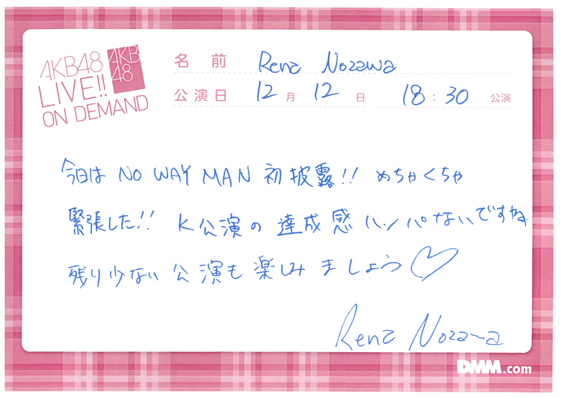 AKB48
LIVE!!
ON DEMAND
AKB
48
名前 Rena Nozawa
公演日 12月 12日 18:30 公演
今日は NO WAY MAN 初披露!! めちゃくちゃ
緊張した!! K公演の達成感ハンパないですね
残り少ない公演も楽しみましょう♡
Rena Nozawa
DMM.com